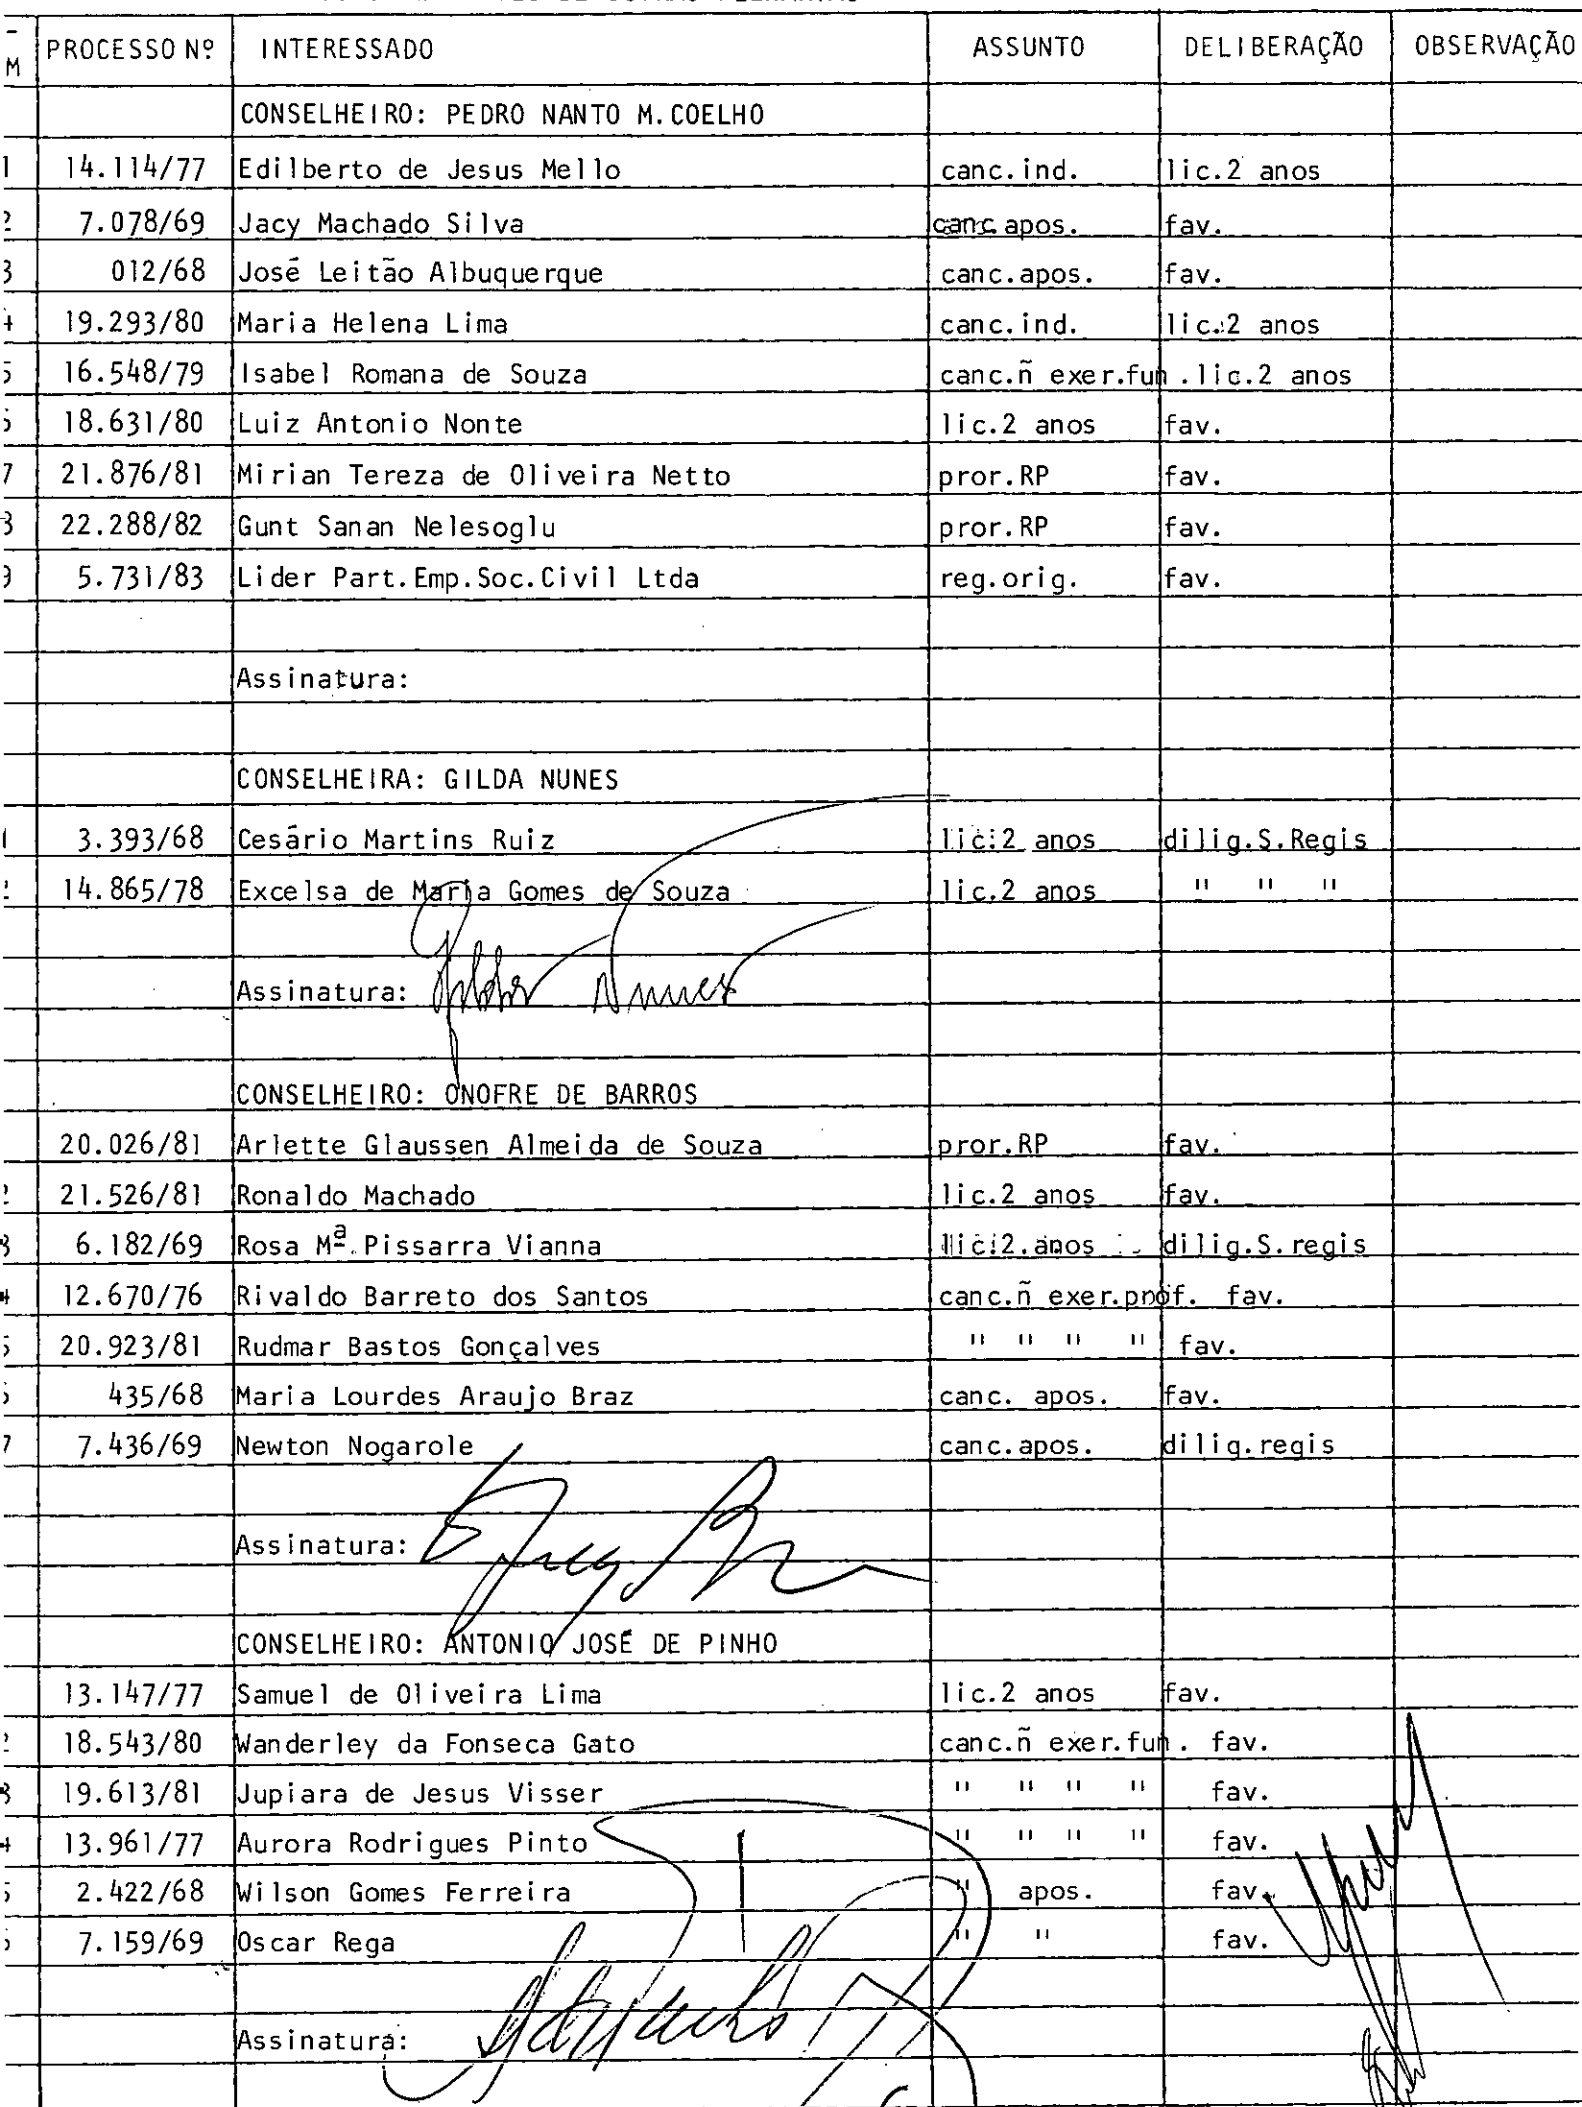 M PROCESSO Nº INTERESSADO ASSUNTO DELIBERAÇÃO OBSERVAÇÃO
CONSELHEIRO: PEDRO NANTO M.COELHO
1 14.114/77 Edilberto de Jesus Mello canc.ind. lic.2 anos
2 7.078/69 Jacy Machado Silva canc.apos. fav.
3 012/68 José Leitão Albuquerque canc.apos. fav.
4 19.293/80 Maria Helena Lima canc.ind. lic.2 anos
5 16.548/79 Isabel Romana de Souza canc.ñ exer.fun.lic.2 anos
6 18.631/80 Luiz Antonio Nonte lic.2 anos fav.
7 21.876/81 Mirian Tereza de Oliveira Netto pror.RP fav.
8 22.288/82 Gunt Sanan Nelesoglu pror.RP fav.
9 5.731/83 Lider Part.Emp.Soc.Civil Ltda reg.orig. fav.
Assinatura:
CONSELHEIRA: GILDA NUNES
1 3.393/68 Cesário Martins Ruiz lic.2 anos dilig.S.Regis
2 14.865/78 Excelsa de Maria Gomes de Souza lic.2 anos " " "
Assinatura: Gilda Nunes
CONSELHEIRO: ONOFRE DE BARROS
20.026/81 Arlette Glaussen Almeida de Souza pror.RP fav.
2 21.526/81 Ronaldo Machado lic.2 anos fav.
3 6.182/69 Rosa Mª.Pissarra Vianna lic.2.anos dilig.S.regis
4 12.670/76 Rivaldo Barreto dos Santos canc.ñ exer.prof. fav.
5 20.923/81 Rudmar Bastos Gonçalves " " " " fav.
6 435/68 Maria Lourdes Araujo Braz canc. apos. fav.
7 7.436/69 Newton Nogarole canc.apos. dilig.regis
Assinatura:
CONSELHEIRO: ANTONIO JOSÉ DE PINHO
13.147/77 Samuel de Oliveira Lima lic.2 anos fav.
2 18.543/80 Wanderley da Fonseca Gato canc.ñ exer.fun. fav.
3 19.613/81 Jupiara de Jesus Visser " " " " fav.
4 13.961/77 Aurora Rodrigues Pinto " " " " fav.
5 2.422/68 Wilson Gomes Ferreira " apos. fav.
6 7.159/69 Oscar Rega " " fav.
Assinatura: